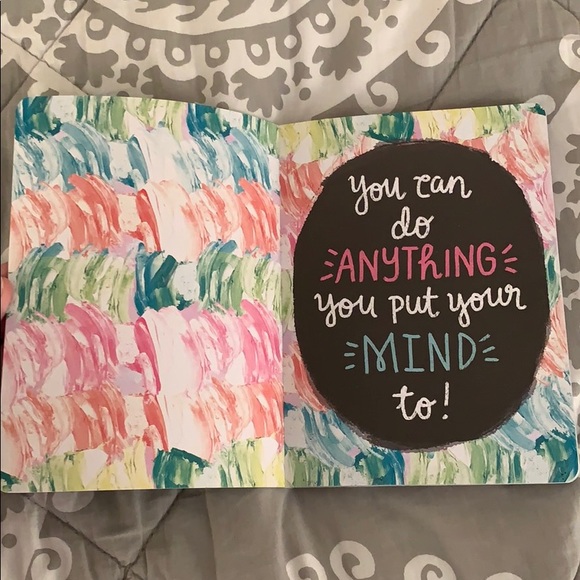 You can
do
ANYThING
you put your
MIND
to!